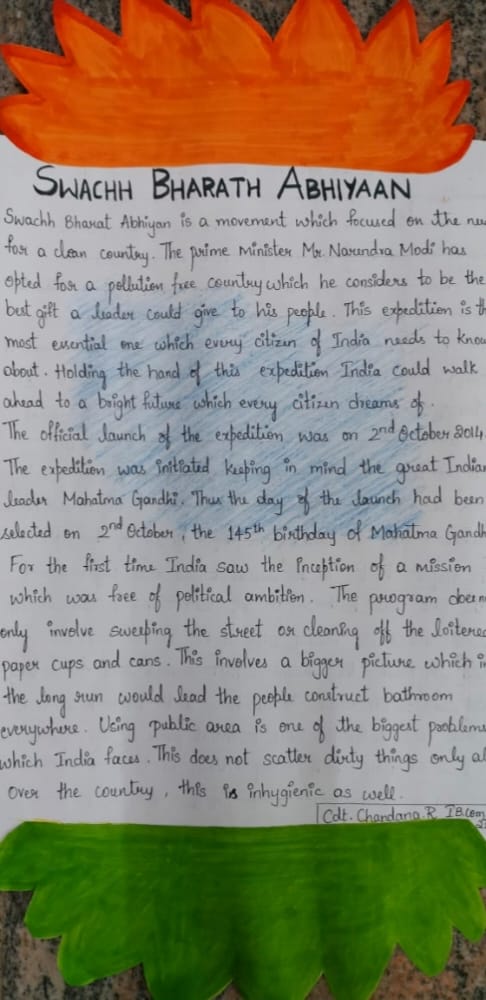 SWACHH BHARATH ABHIYAAN
Swachh Bharat Abhiyan is a movement which focused on the
for a clean country. The prime minister Mr. Narendra Modi has
opted for a pollution free country which he considers to be the
best gift a leader could give to his people. This expedition is
most essential one which every citizen of India needs to know
about. Holding the hand of this expedition India could walk
ahead to a bright future which every citizen dreams of.
The official launch of the expedition was on 2nd October 2014.
The expedition was initiated keeping in mind the great Indian
leader Mahatma Gandhi. Thus the day of the launch had been
selected on 2nd October, the 145th birthday of Mahatma Gandh
For the first time India saw the inception of a mission
which was free of political ambition. The program
only involve sweeping the street or cleaning off the loitered
paper cups and cans. This involves a bigger picture which in
the long run would lead the people construct bathroom
everywhere. Using public area is one of the biggest problems
which India faces. This does not scatter dirty things only al
over the country, this is inhygienic as well.
Cdt. Chandana. R I B.Com